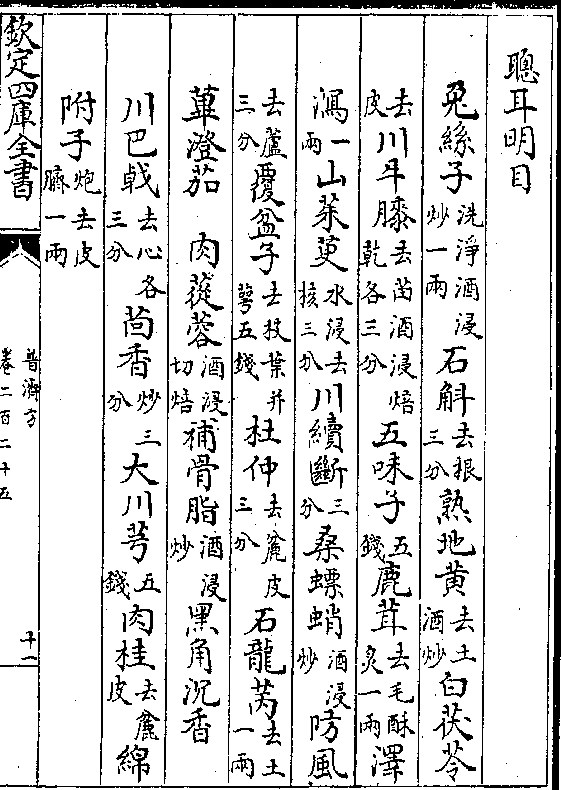 聰耳明目
兔絲子洗淨酒浸炒一兩石斛去根三分熟地黄去土酒炒白茯苓
去皮川牛膝去苗酒浸焙乾各三分五味子五錢鹿茸去毛酥炙一兩澤
瀉一兩山茱萸水浸去核三分川續斷三分桑螵蛸酒浸炒防風
去蘆三分覆盆子去枝葉并萼五錢杜仲去麄皮三分石龍芮去土一兩
蓽澄茄肉蓯蓉酒浸切焙補骨脂酒浸炒黑角沉香
川巴戟去心各三分茴香炒三分大川芎五錢肉桂去麄皮綿
附子炮去皮臍一兩
欽定四庫全書
普濟方
卷二百二十五
十一